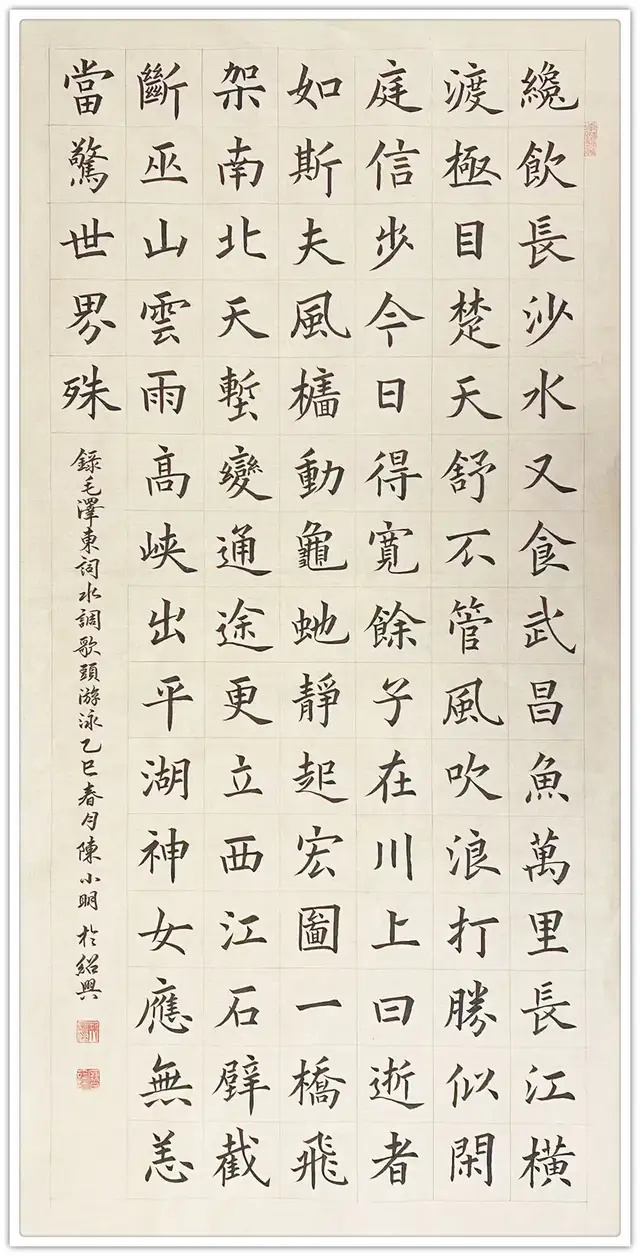 纔飲長沙水又食武昌魚萬里長江橫
渡極目楚天舒不管風吹浪打勝似閑
庭信步今日得寬餘子在川上曰逝者
如斯夫風檣動龜虵靜起宏圖一橋飛
架南北天塹變通途更立西江石壁截
斷巫山雲雨高峽出平湖神女應無恙
當驚世界殊
錄毛澤東詞水調歌頭游泳乙巳春月陳小明於紹興